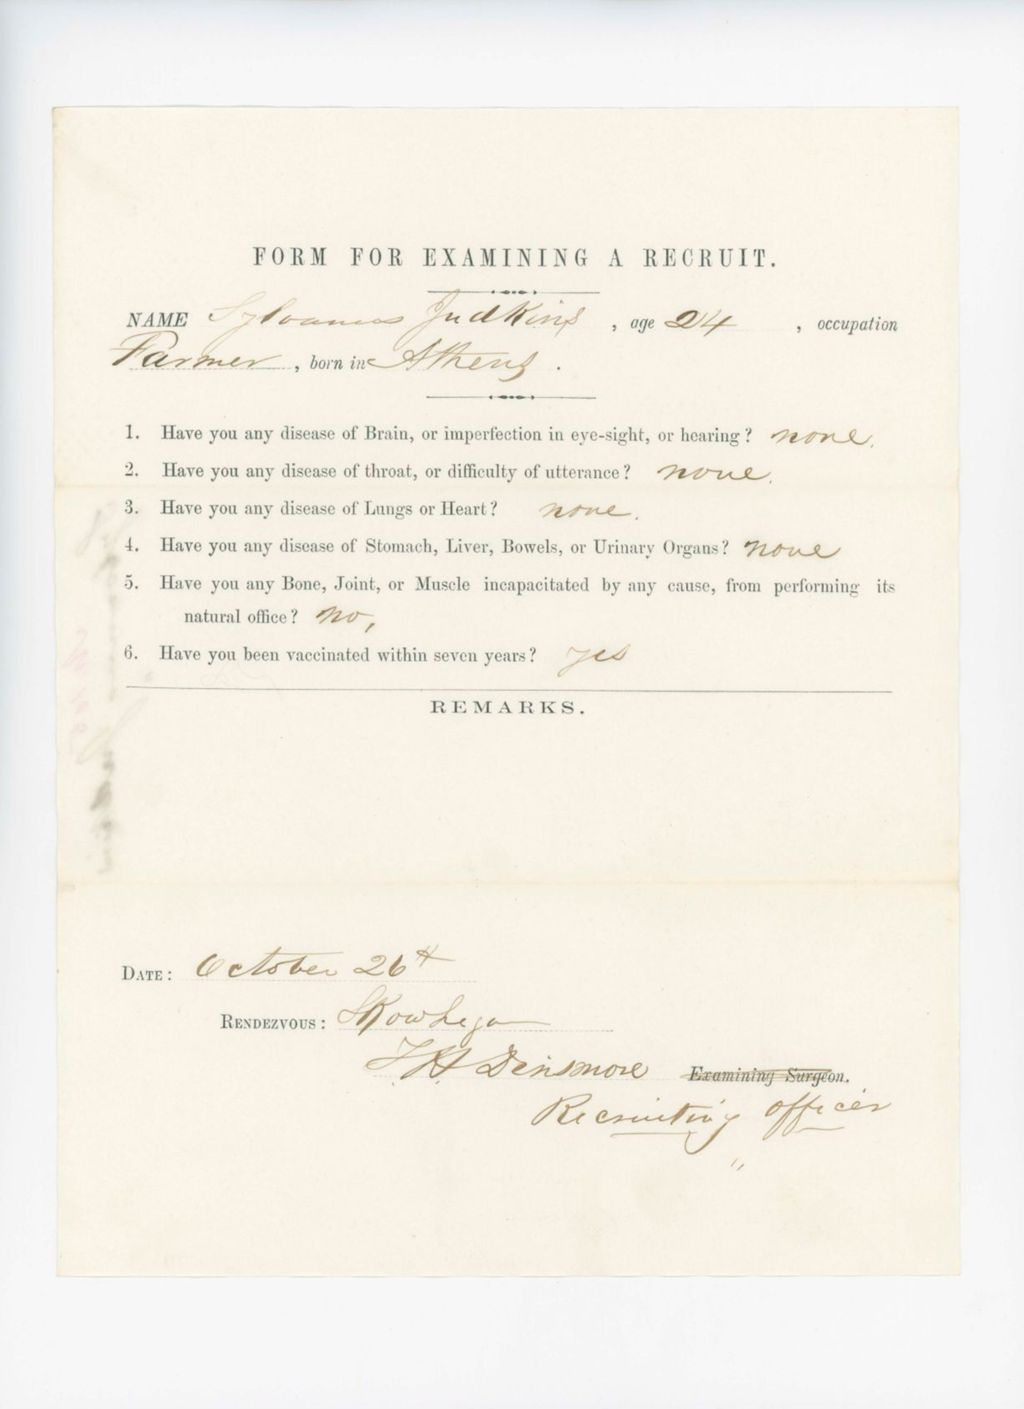 FORM FOR EXAMINING A RECRUIT.
NAME Sylvanus Judkins, age 24, occupation
Farmer, born in Athens.
1. Have you any disease of Brain, or imperfection in eye-sight, or hearing? none.
2. Have you any disease of throat, or difficulty of utterance? none.
3. Have you any disease of Lungs or Heart? none.
4. Have you any disease of Stomach, Liver, Bowels, or Urinary Organs? none
5. Have you any Bone, Joint, or Muscle incapacitated by any cause, from performing its
natural office? no,
6. Have you been vaccinated within seven years? yes
REMARKS.
DATE: October 26th
RENDEZVOUS: Skowhegan
F. H. Densmore Examining Surgeon.
Recruiting officer